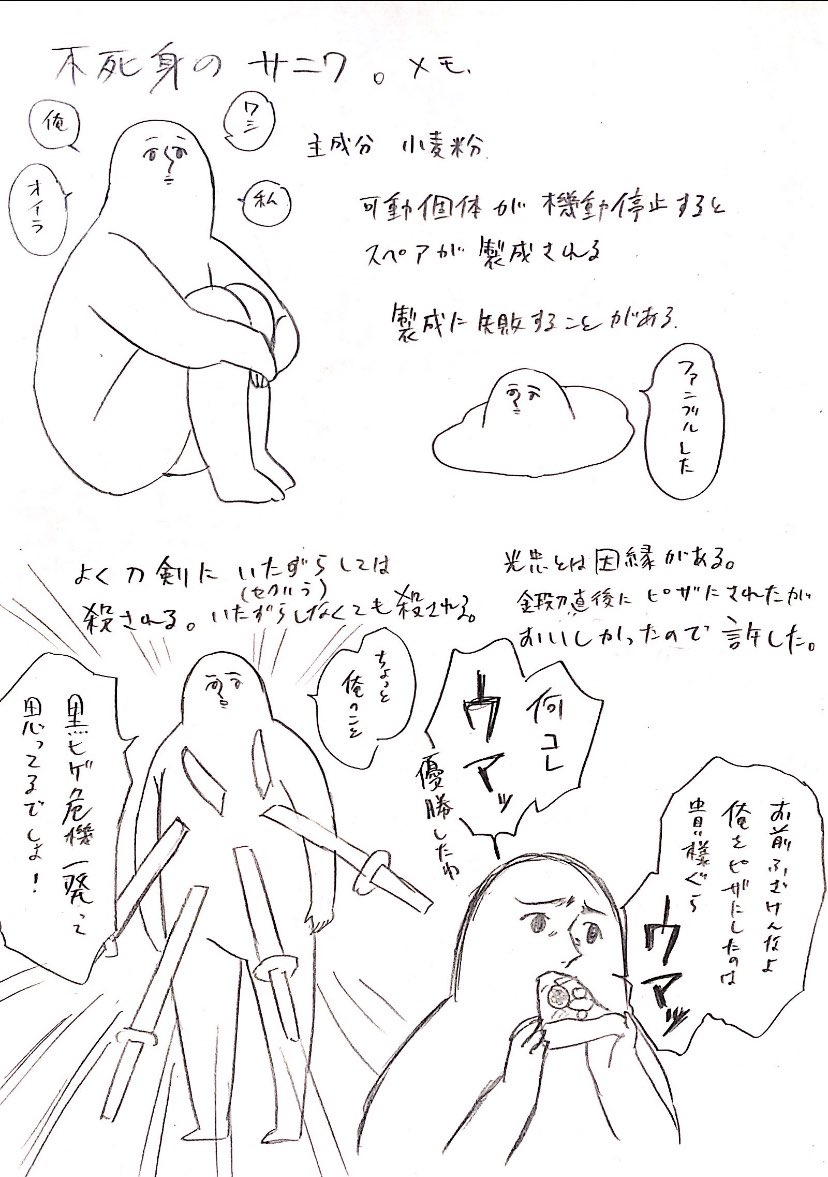 不死身の サニワ。メモ、
俺
ワシ
オイラ
私
主成分 小麦粉
可動個体が 機動停止すると
スペアが 製成される
製成に 失敗することがある
ファンブルした
よく刀剣に いたずらしては
(セクハラ)
殺される。いたずらしなくても殺される。
光忠とは因縁がある。
鍛刀直後に ピザにされたが
おいしかったので 許した。
ちょっと
俺のこと
黒ヒゲ危機一発って
思ってるでしょ!
何コレ
ウマッ
優勝したわ
お前ふざけんなよ
俺をピザにしたのは
貴様ぐら
ウマッ